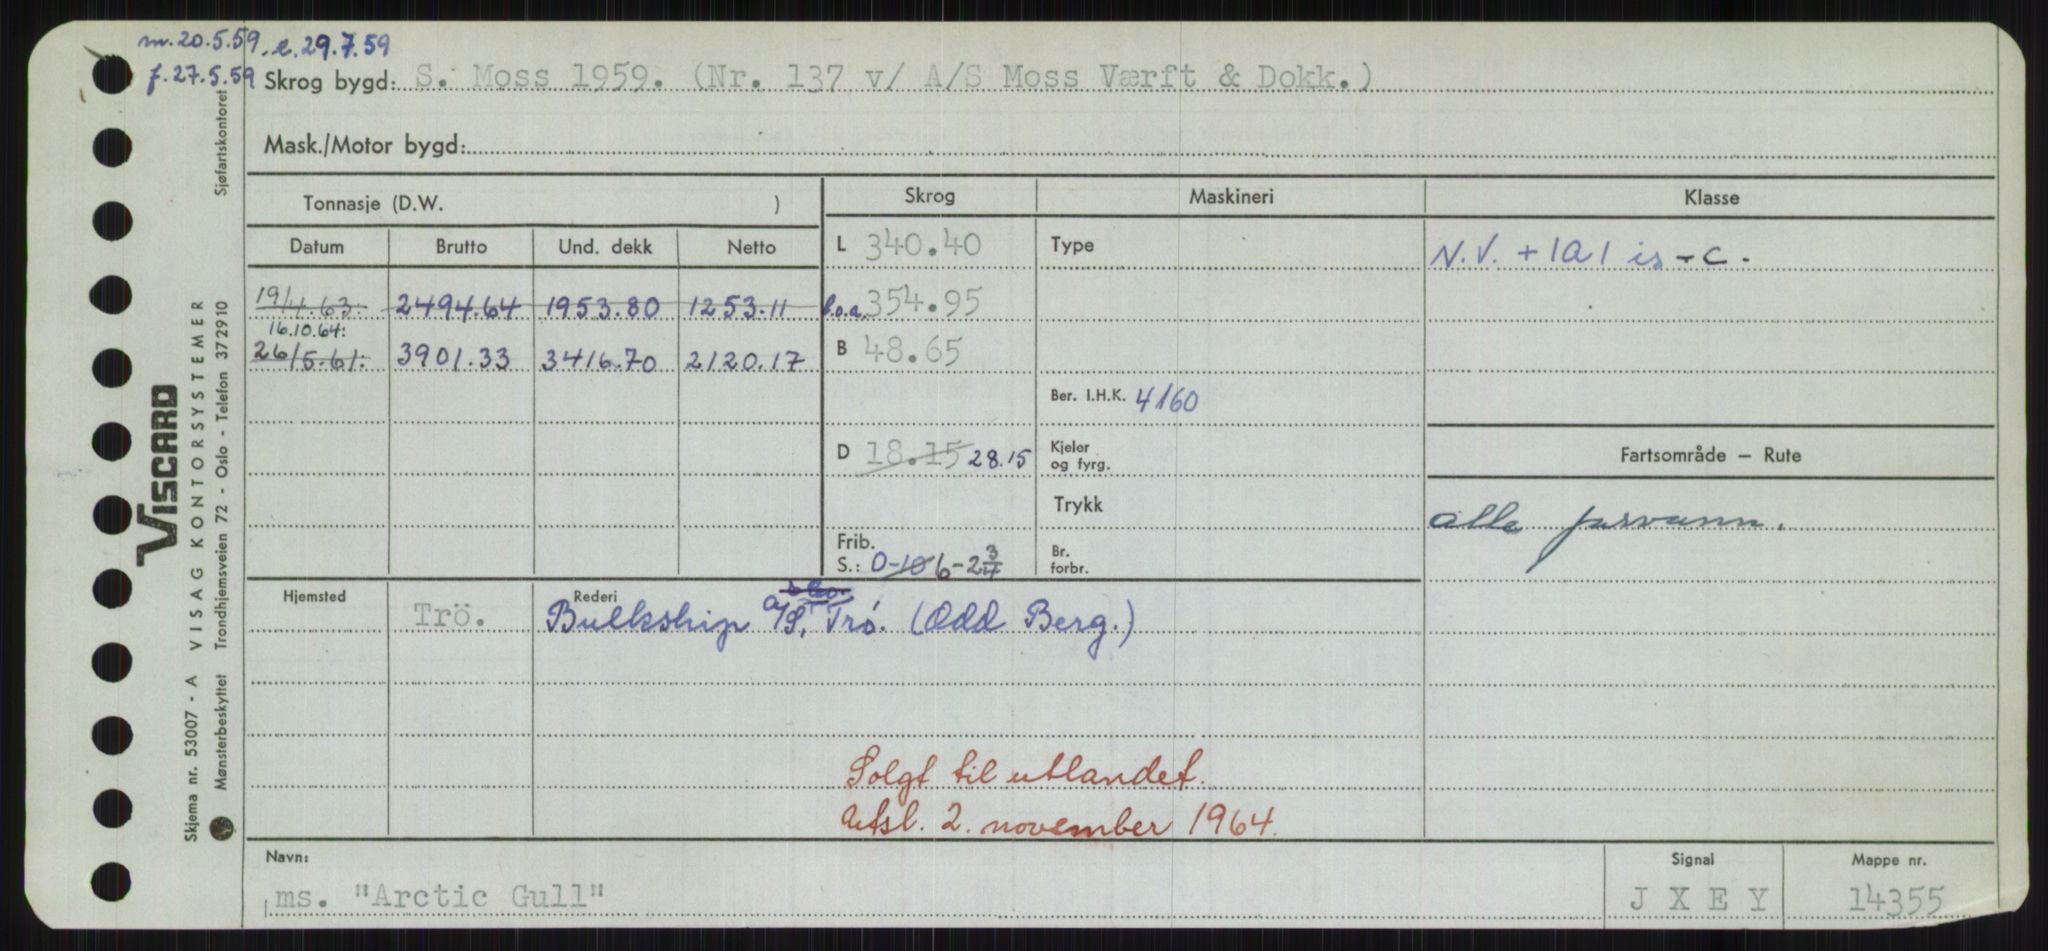 m. 20.5.59. e. 29.7.59
f. 27.5.59
Skrog bygd: S. Moss 1959. (Nr. 137 v/ A/S Moss Værft & Dokk.)
Mask./Motor bygd:
Tonnasje (D.W. )
Skrog
Maskineri
Klasse
Datum Brutto Und. dekk Netto
L 340.40
Type
N.V. + 1A1 is - C.
19/4.63: 2494.64 1953.80 1253.11
l.o.a. 354.95
16.10.64:
26/5.61: 3901.33 3416.70 2120.17
B 48.65
Ber. I.H.K. 4160
D 18.15 28.15
Kjeler
og fyrg.
Fartsområde — Rute
Trykk
alle farvann.
Frib.
S.: 0-10 6-2 3/4
Br.
forbr.
Hjemsted
Trö.
Rederi
Bulkship A/S, Trö. (Odd Berg.)
Solgt til utlandet.
Utsl. 2. november 1964.
Navn:
ms. "Arctic Gull"
Signal
J X E Y
Mappe nr.
14355
VISCARD
Skjema nr. 53007 - A VISAG KONTORSYSTEMER
Mønsterbeskyttet Trondhjemsveien 72 - Oslo - Telefon 372910
Sjøfartskontoret